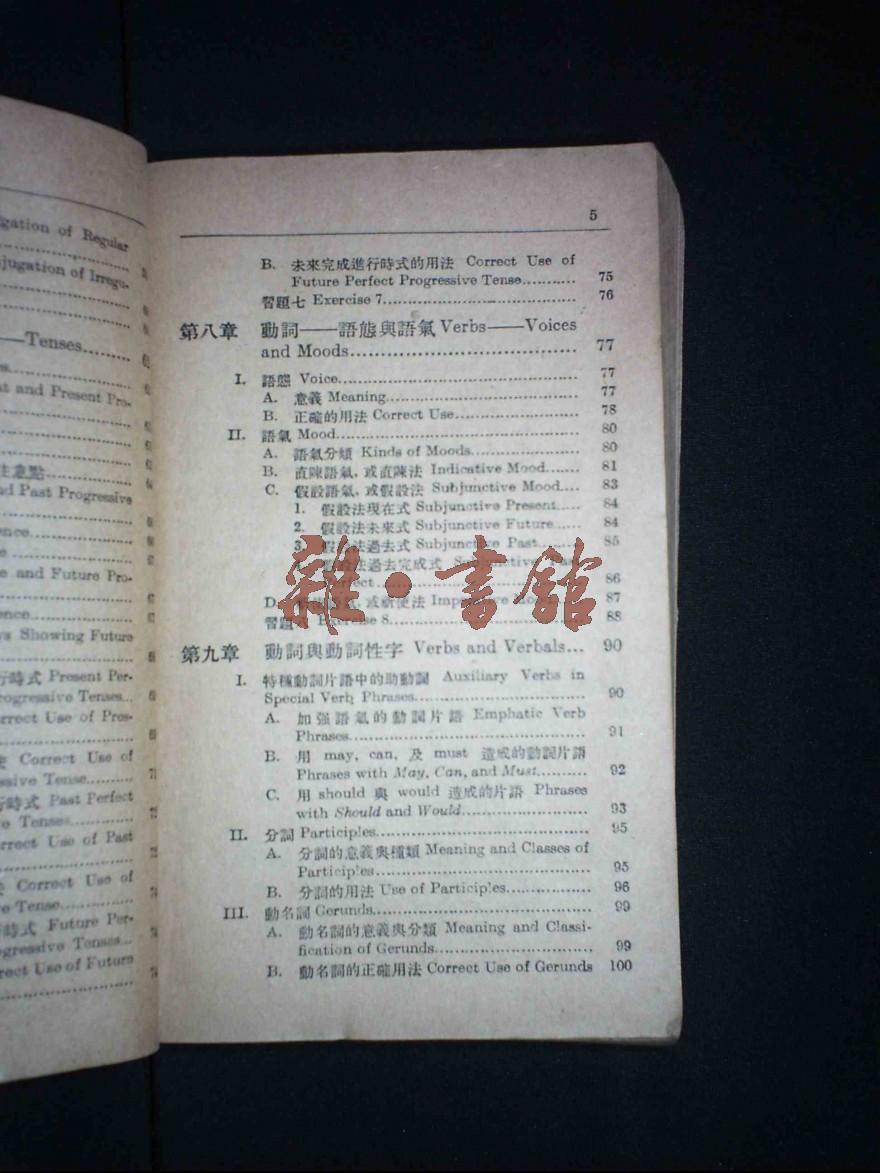 gation of Regular
jugation of Irregu-
—Tenses
nt and Present Pro-
注意點
nd Past Progressive
ence
e and Future Pro-
ence
ys Showing Future
行時式 Present Per-
rogressive Tenses
rrect Use of Pres-
Correct Use of
ssive Tense
行時式 Past Perfect
e Tenses
rrect Use of Past
Correct Use of
ve Tense
行時式 Future Per-
gressive Tenses
rect Use of Future
5
B. 未來完成進行時式的用法 Correct Use of
Future Perfect Progressive Tense........... 75
習題七 Exercise 7........................................ 76
第八章 動詞——語態與語氣 Verbs——Voices
and Moods.................................. 77
I. 語態 Voice.................................................. 77
A. 意義 Meaning........................................ 77
B. 正確的用法 Correct Use......................... 78
II. 語氣 Mood................................................. 80
A. 語氣分類 Kinds of Moods...................... 80
B. 直陳語氣,或直陳法 Indicative Mood....... 81
C. 假設語氣,或假設法 Subjunctive Mood.... 83
1. 假設法現在式 Subjunctive Present..... 84
2. 假設法未來式 Subjunctive Future...... 84
3. 假設法過去式 Subjunctive Past......... 85
法過去完成式 Subjunctive Past
Perfect........................................ 86
D. 語氣,或祈使法 87
習題 Exercise 8........................................ 88
雜·書館
第九章 動詞與動詞性字 Verbs and Verbals... 90
I. 特種動詞片語中的助動詞 Auxiliary Verbs in
Special Verb Phrases................................ 90
A. 加强語氣的動詞片語 Emphatic Verb
Phrases............................................... 91
B. 用 may, can, 及 must 造成的動詞片語
Phrases with May, Can, and Must.......... 92
C. 用 should 與 would 造成的片語 Phrases
with Should and Would.......................... 93
II. 分詞 Participles........................................... 95
A. 分詞的意義與種類 Meaning and Classes of
Participles............................................ 95
B. 分詞的用法 Use of Participles................. 96
III. 動名詞 Gerunds........................................... 99
A. 動名詞的意義與分類 Meaning and Classi-
fication of Gerunds............................... 99
B. 動名詞的正確用法 Correct Use of Gerunds 100